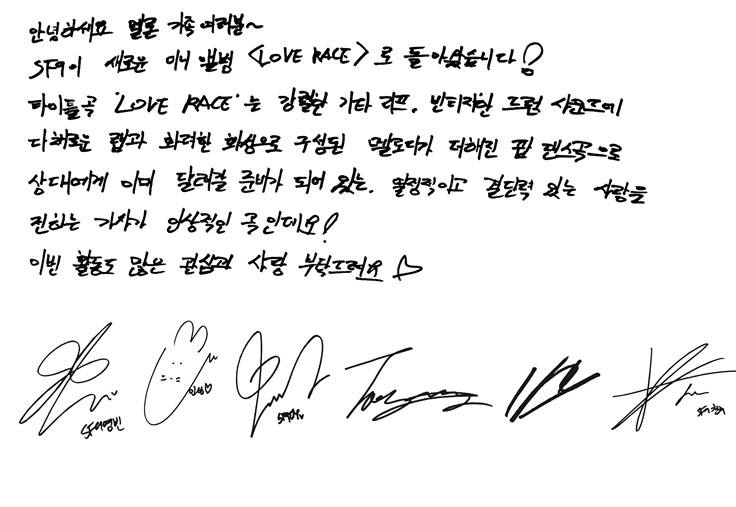 안녕하세요 멜론 가족 여러분~
SF9이 새로운 미니 앨범 <LOVE RACE>로 돌아왔습니다!
타이틀곡 'LOVE RACE'는 강렬한 기타 리프, 빈티지한 드럼 사운드에
다채로운 랩과 화려한 화성으로 구성된 멜로디가 더해진 팝 댄스곡으로
상대에게 이미 달려갈 준비가 되어 있는, 열정적이고 결단력 있는 사랑을
전하는 가사가 인상적인 곡인데요!
이번 활동도 많은 관심과 사랑 부탁드려요
SF9영빈 인성♡